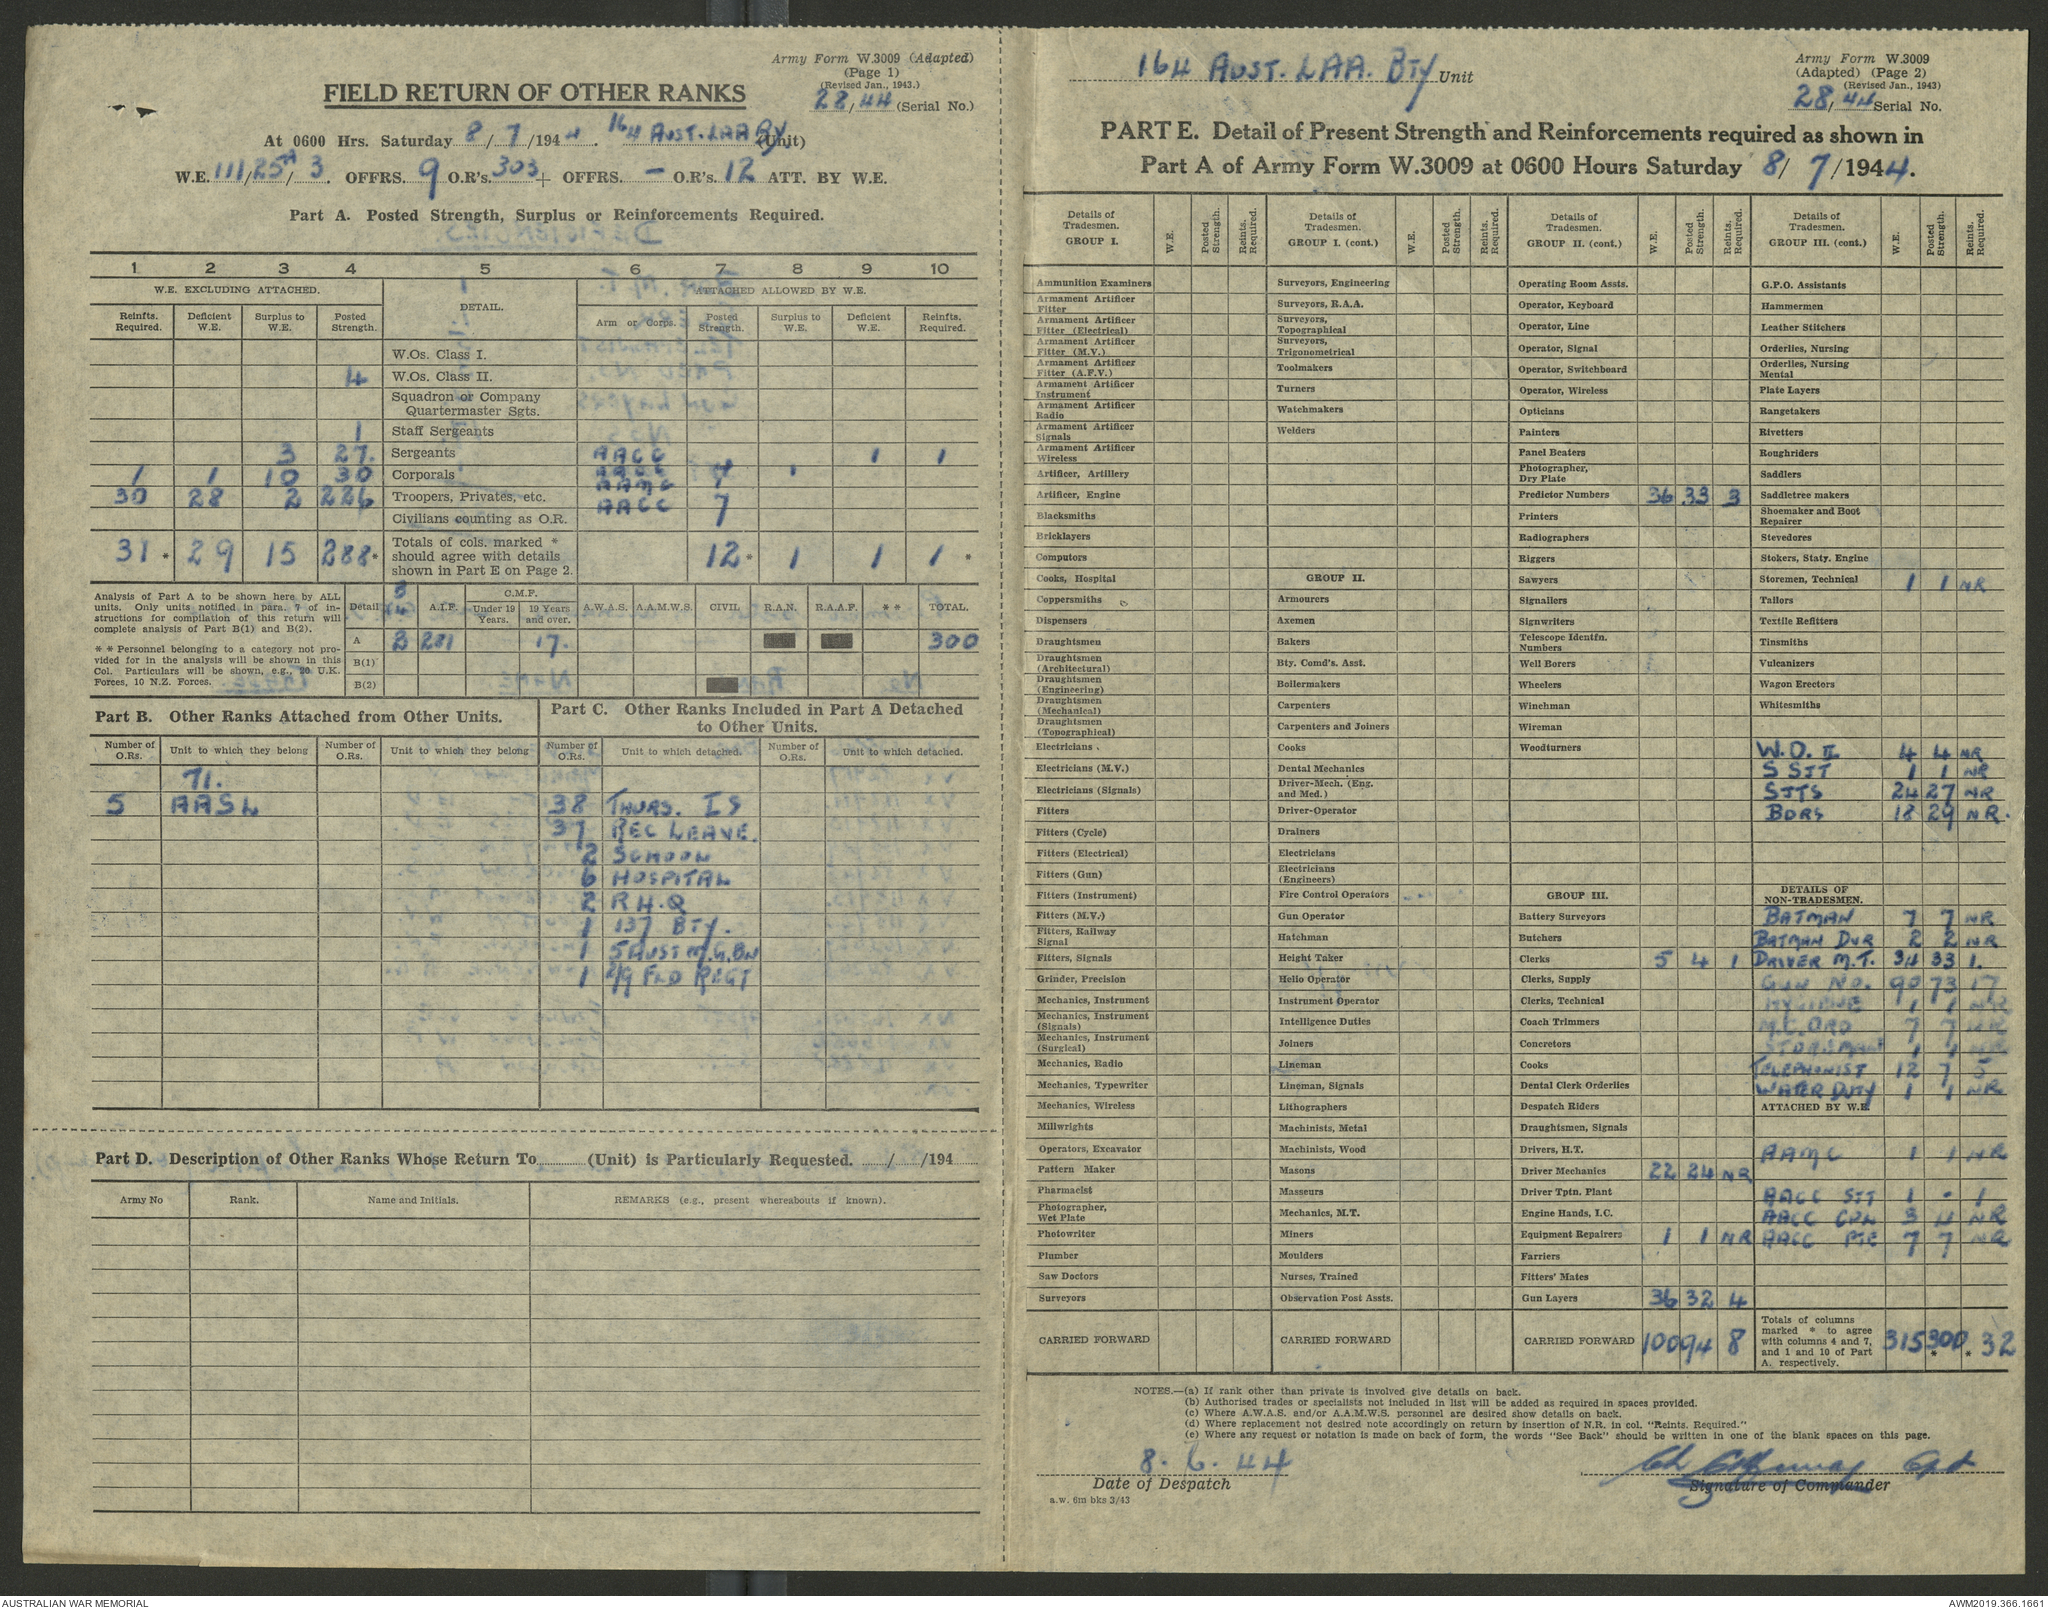 Army Form W.3009 (Adapted)
(Page 1)
(Revised Jan., 1943.)
28/44 (Serial No.)
FIELD RETURN OF OTHER RANKS
At 0600 Hrs. Saturday 8/7/1944. 164 AUST. LAA BY (Unit)
W.E. 111/25A/3. OFFRS. 9 O.R's. 303 + OFFRS. – O.R's. 12 ATT. BY W.E.
Part A. Posted Strength, Surplus or Reinforcements Required.
1 2 3 4 5 6 7 8 9 10
W.E. EXCLUDING ATTACHED. DETAIL. ATTACHED ALLOWED BY W.E.
Reinfts. Required. Deficient W.E. Surplus to W.E. Posted Strength. Arm or Corps. Posted Strength. Surplus to W.E. Deficient W.E. Reinfts. Required.
W.Os. Class I.
4 W.Os. Class II.
Squadron or Company Quartermaster Sgts.
1 Staff Sergeants
3 27. Sergeants AACC 1 1
1 1 10 30 Corporals AACC 4 1
AAMC 1
30 28 2 226 Troopers, Privates, etc. AACC 7
Civilians counting as O.R.
31* 29 15 288* Totals of cols. marked * should agree with details shown in Part E on Page 2. 12* 1 1 1*
Analysis of Part A to be shown here by ALL units. Only units notified in para. 7 of instructions for compilation of this return will complete analysis of Part B(1) and B(2).
* * Personnel belonging to a category not provided for in the analysis will be shown in this Col. Particulars will be shown, e.g., 20 U.K. Forces, 10 N.Z. Forces.
Detail A.I.F. C.M.F. Under 19 Years. 19 Years and over. A.W.A.S. A.A.M.W.S. CIVIL R.A.N. R.A.A.F. * * TOTAL.
A 281 17. 300
B(1)
B(2)
Part B. Other Ranks Attached from Other Units.
Part C. Other Ranks Included in Part A Detached to Other Units.
Number of O.Rs. Unit to which they belong Number of O.Rs. Unit to which they belong Number of O.Rs. Unit to which detached. Number of O.Rs. Unit to which detached.
71.
5 AASL 38 THURS. IS
37 REC LEAVE.
2 SCHOOL
6 HOSPITAL
2 R.H.Q
1 137 BTY.
1 5 AUST M.G. BN
1 2/9 FLD REGT
Part D. Description of Other Ranks Whose Return To (Unit) is Particularly Requested. / /194
Army No Rank. Name and Initials. REMARKS (e.g., present whereabouts if known).
164 AUST. LAA. BTY Unit
Army Form W.3009
(Adapted) (Page 2)
(Revised Jan., 1943)
28/44 Serial No.
PART E. Detail of Present Strength and Reinforcements required as shown in
Part A of Army Form W.3009 at 0600 Hours Saturday 8/7/1944.
Details of Tradesmen. GROUP I. W.E. Posted Strength. Reints. Required.
Ammunition Examiners
Armament Artificer Fitter
Armament Artificer Fitter (Electrical)
Armament Artificer Fitter (M.V.)
Armament Artificer Fitter (A.F.V.)
Armament Artificer Instrument
Armament Artificer Radio
Armament Artificer Signals
Armament Artificer Wireless
Artificer, Artillery
Artificer, Engine
Blacksmiths
Bricklayers
Computors
Cooks, Hospital
Coppersmiths
Dispensers
Draughtsmen
Draughtsmen (Architectural)
Draughtsmen (Engineering)
Draughtsmen (Mechanical)
Draughtsmen (Topographical)
Electricians
Electricians (M.V.)
Electricians (Signals)
Fitters
Fitters (Cycle)
Fitters (Electrical)
Fitters (Gun)
Fitters (Instrument)
Fitters (M.V.)
Fitters, Railway Signal
Fitters, Signals
Grinder, Precision
Mechanics, Instrument
Mechanics, Instrument (Signals)
Mechanics, Instrument (Surgical)
Mechanics, Radio
Mechanics, Typewriter
Mechanics, Wireless
Millwrights
Operators, Excavator
Pattern Maker
Pharmacist
Photographer, Wet Plate
Photowriter
Plumber
Saw Doctors
Surveyors
CARRIED FORWARD
Details of Tradesmen. GROUP I. (cont.) W.E. Posted Strength. Reints. Required.
Surveyors, Engineering
Surveyors, R.A.A.
Surveyors, Topographical
Surveyors, Trigonometrical
Toolmakers
Turners
Watchmakers
Welders
GROUP II.
Armourers
Axemen
Bakers
Bty. Comd's. Asst.
Boilermakers
Carpenters
Carpenters and Joiners
Cooks
Dental Mechanics
Driver-Mech. (Eng. and Med.)
Driver-Operator
Drainers
Electricians
Electricians (Engineers)
Fire Control Operators
Gun Operator
Hatchman
Height Taker
Helio Operator
Instrument Operator
Intelligence Duties
Joiners
Lineman
Lineman, Signals
Lithographers
Machinists, Metal
Machinists, Wood
Masons
Masseurs
Mechanics, M.T.
Miners
Moulders
Nurses, Trained
Observation Post Assts.
CARRIED FORWARD
Details of Tradesmen. GROUP II. (cont.) W.E. Posted Strength. Reints. Required.
Operating Room Assts.
Operator, Keyboard
Operator, Line
Operator, Signal
Operator, Switchboard
Operator, Wireless
Opticians
Painters
Panel Beaters
Photographer, Dry Plate
Predictor Numbers 36 33 3
Printers
Radiographers
Riggers
Sawyers
Signallers
Signwriters
Telescope Identfn. Numbers
Well Borers
Wheelers
Winchman
Wireman
Woodturners
GROUP III.
Battery Surveyors
Butchers
Clerks 5 4 1
Clerks, Supply
Clerks, Technical
Coach Trimmers
Concretors
Cooks
Dental Clerk Orderlies
Despatch Riders
Draughtsmen, Signals
Drivers, H.T.
Driver Mechanics 22 24 NR
Driver Tptn. Plant
Engine Hands, I.C.
Equipment Repairers 1 1 NR
Farriers
Fitters' Mates
Gun Layers 36 32 4
CARRIED FORWARD 100 94 8
Details of Tradesmen. GROUP III. (cont.) W.E. Posted Strength. Reints. Required.
G.P.O. Assistants
Hammermen
Leather Stitchers
Orderlies, Nursing
Orderlies, Nursing Mental
Plate Layers
Rangetakers
Rivetters
Roughriders
Saddlers
Saddletree makers
Shoemaker and Boot Repairer
Stevedores
Stokers, Staty. Engine
Storemen, Technical 1 1 NR
Tailors
Textile Refitters
Tinsmiths
Vulcanizers
Wagon Erectors
Whitesmiths
W.O. II 4 4 NR
S SJT 1 1 NR
SJTS 24 27 NR
BDRS 18 29 NR.
DETAILS OF NON-TRADESMEN.
BATMAN 7 7 NR
BATMAN DVR 2 2 NR
DRIVER M.T. 34 33 1.
GUN NO. 90 73 17
HYGIENE 1 1 NR
M.C. ORD 7 7 NR
STOREMAN 1 1 NR
TELEPHONIST 12 7 5
WATER DUTY 1 1 NR
ATTACHED BY W.E.
AAMC 1 1 NR
AACC SJT 1 - 1
AACC CPL 3 4 NR
AACC PTE 7 7 NR
Totals of columns marked * to agree with columns 4 and 7, and 1 and 10 of Part A. respectively. 315 300* *32
NOTES.—(a) If rank other than private is involved give details on back.
(b) Authorised trades or specialists not included in list will be added as required in spaces provided.
(c) Where A.W.A.S. and/or A.A.M.W.S. personnel are desired show details on back.
(d) Where replacement not desired note accordingly on return by insertion of N.R. in col. "Reints. Required."
(e) Where any request or notation is made on back of form, the words "See Back" should be written in one of the blank spaces on this page.
8. 6. 44
Date of Despatch
Capt
Signature of Commander
a.w. 6m bks 3/43
AUSTRALIAN WAR MEMORIAL
AWM2019.366.1661